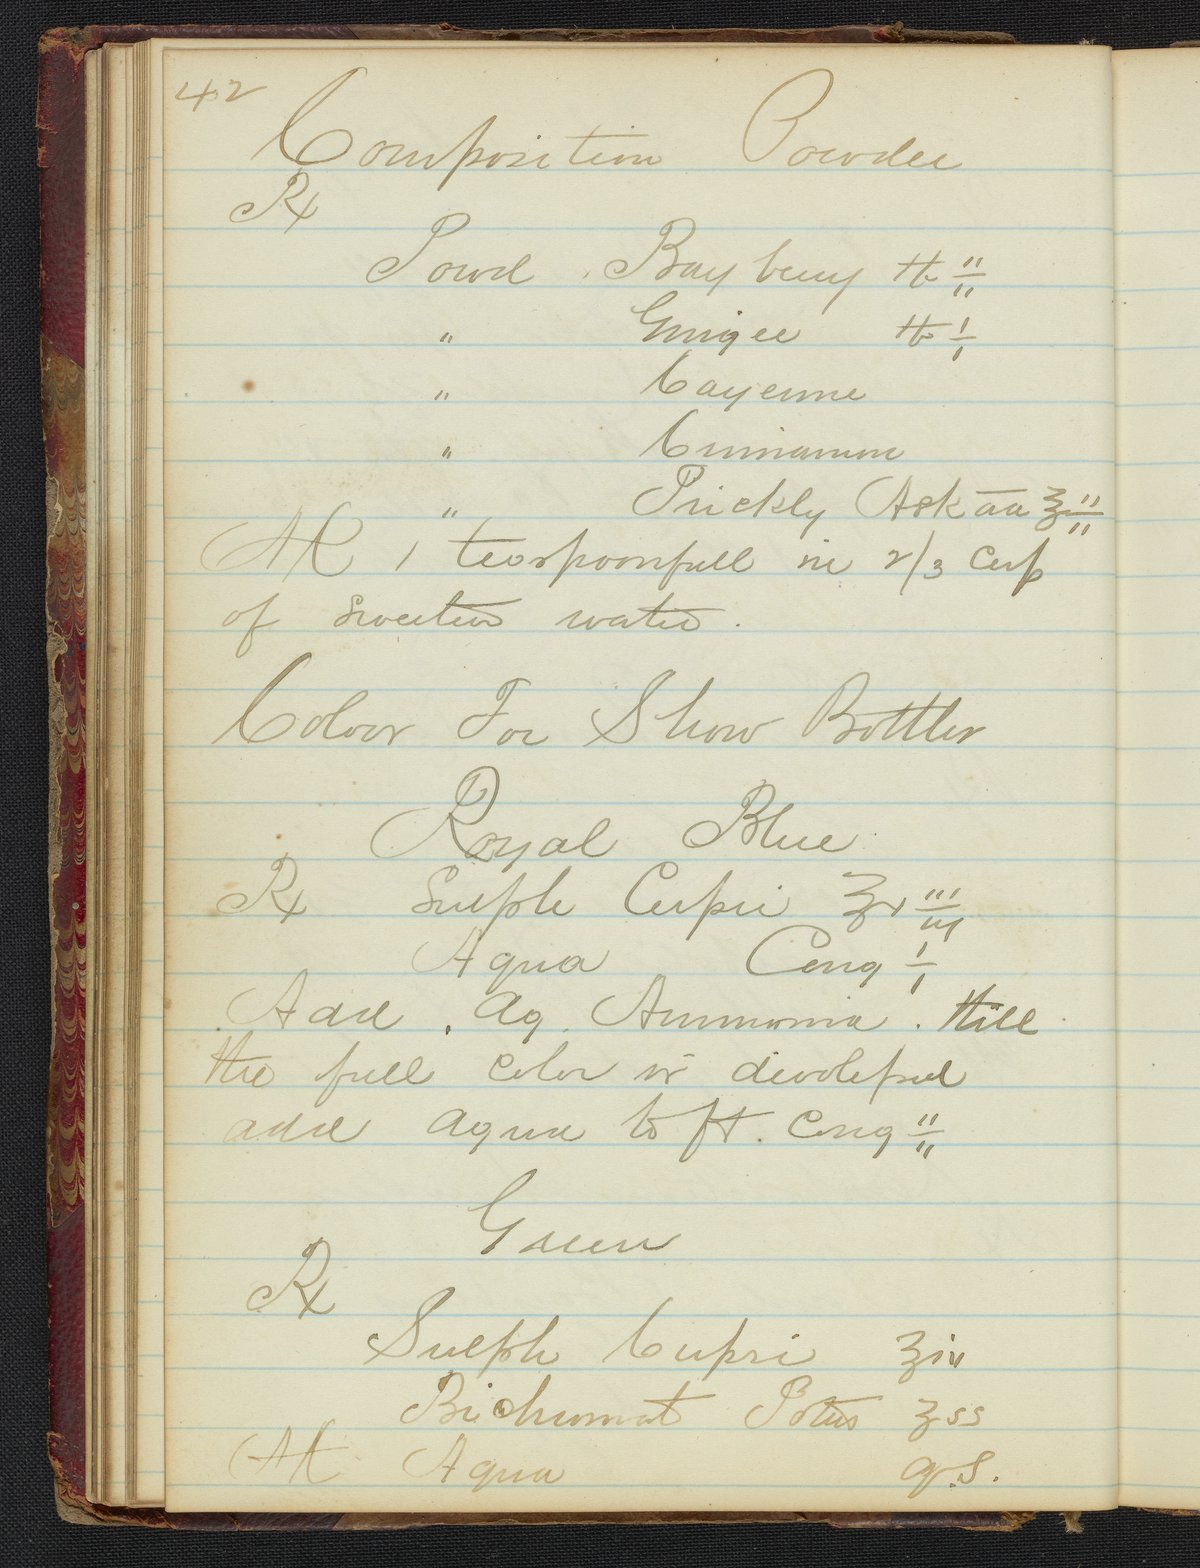 42
Composition Powder
Rx
Powd. Bayberry ℔ ii
" Ginger ℔ i
" Cayenne
" Cinnamon
" Prickly Ash āā ℥ ii
M 1 teaspoonfull in 2/3 cup
of sweeten water.
Coloor For Show Bottler
Royal Blue
Rx Sulph Cupri iii
Aqua Cong i
Add. Aq. Ammonia. till
the full color is
add aqua to ft. Cong ii
Green
Rx
Sulph Cupri
Bichromat Potas ss
M Aqua q.s.